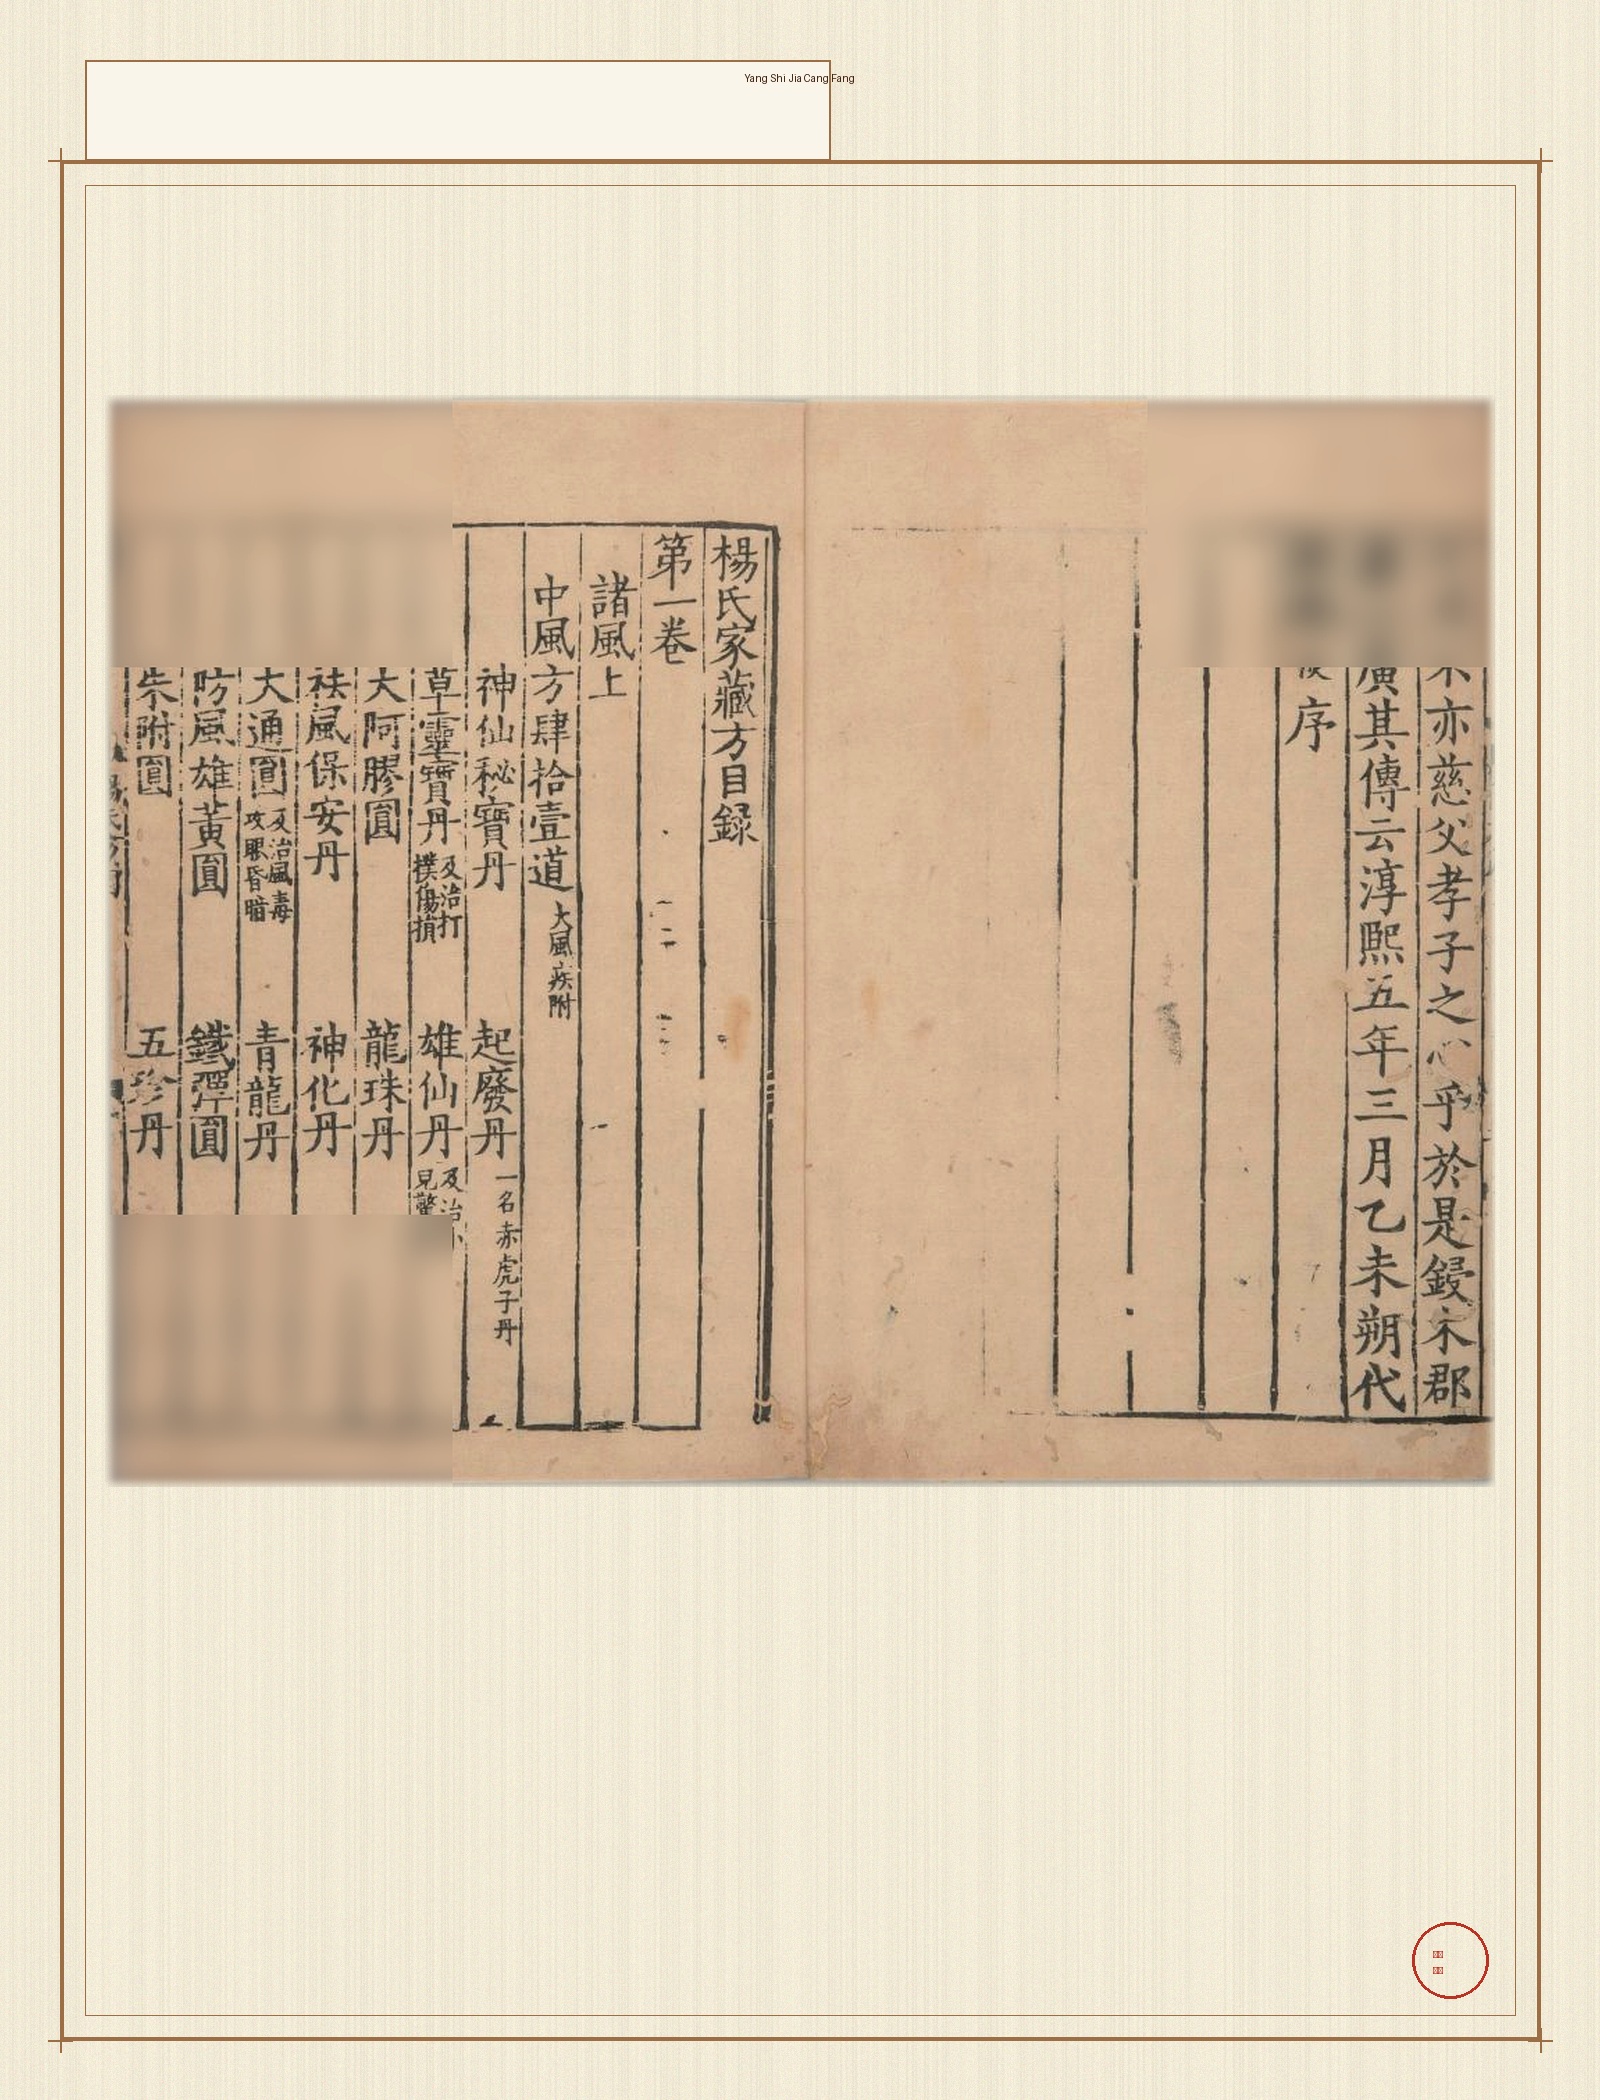 Yang Shi Jia Cang Fang
亦慈父孝子之心乎於是鋟木郡
廣其傳云淳熙五年三月乙未朔代
序
楊氏家藏方目録
第一卷
諸風上
中風方肆拾壹道大風疾附
神仙秘寶丹 起廢丹一名赤虎子丹
草靈寶丹及治打撲傷損 雄仙丹及治見驚
大阿膠圓 龍珠丹
祛風保安丹 神化丹
大通圓及治風毒攻眼昏暗 青龍丹
防風雄黃圓 鐵彈圓
朱附圓 五珍丹